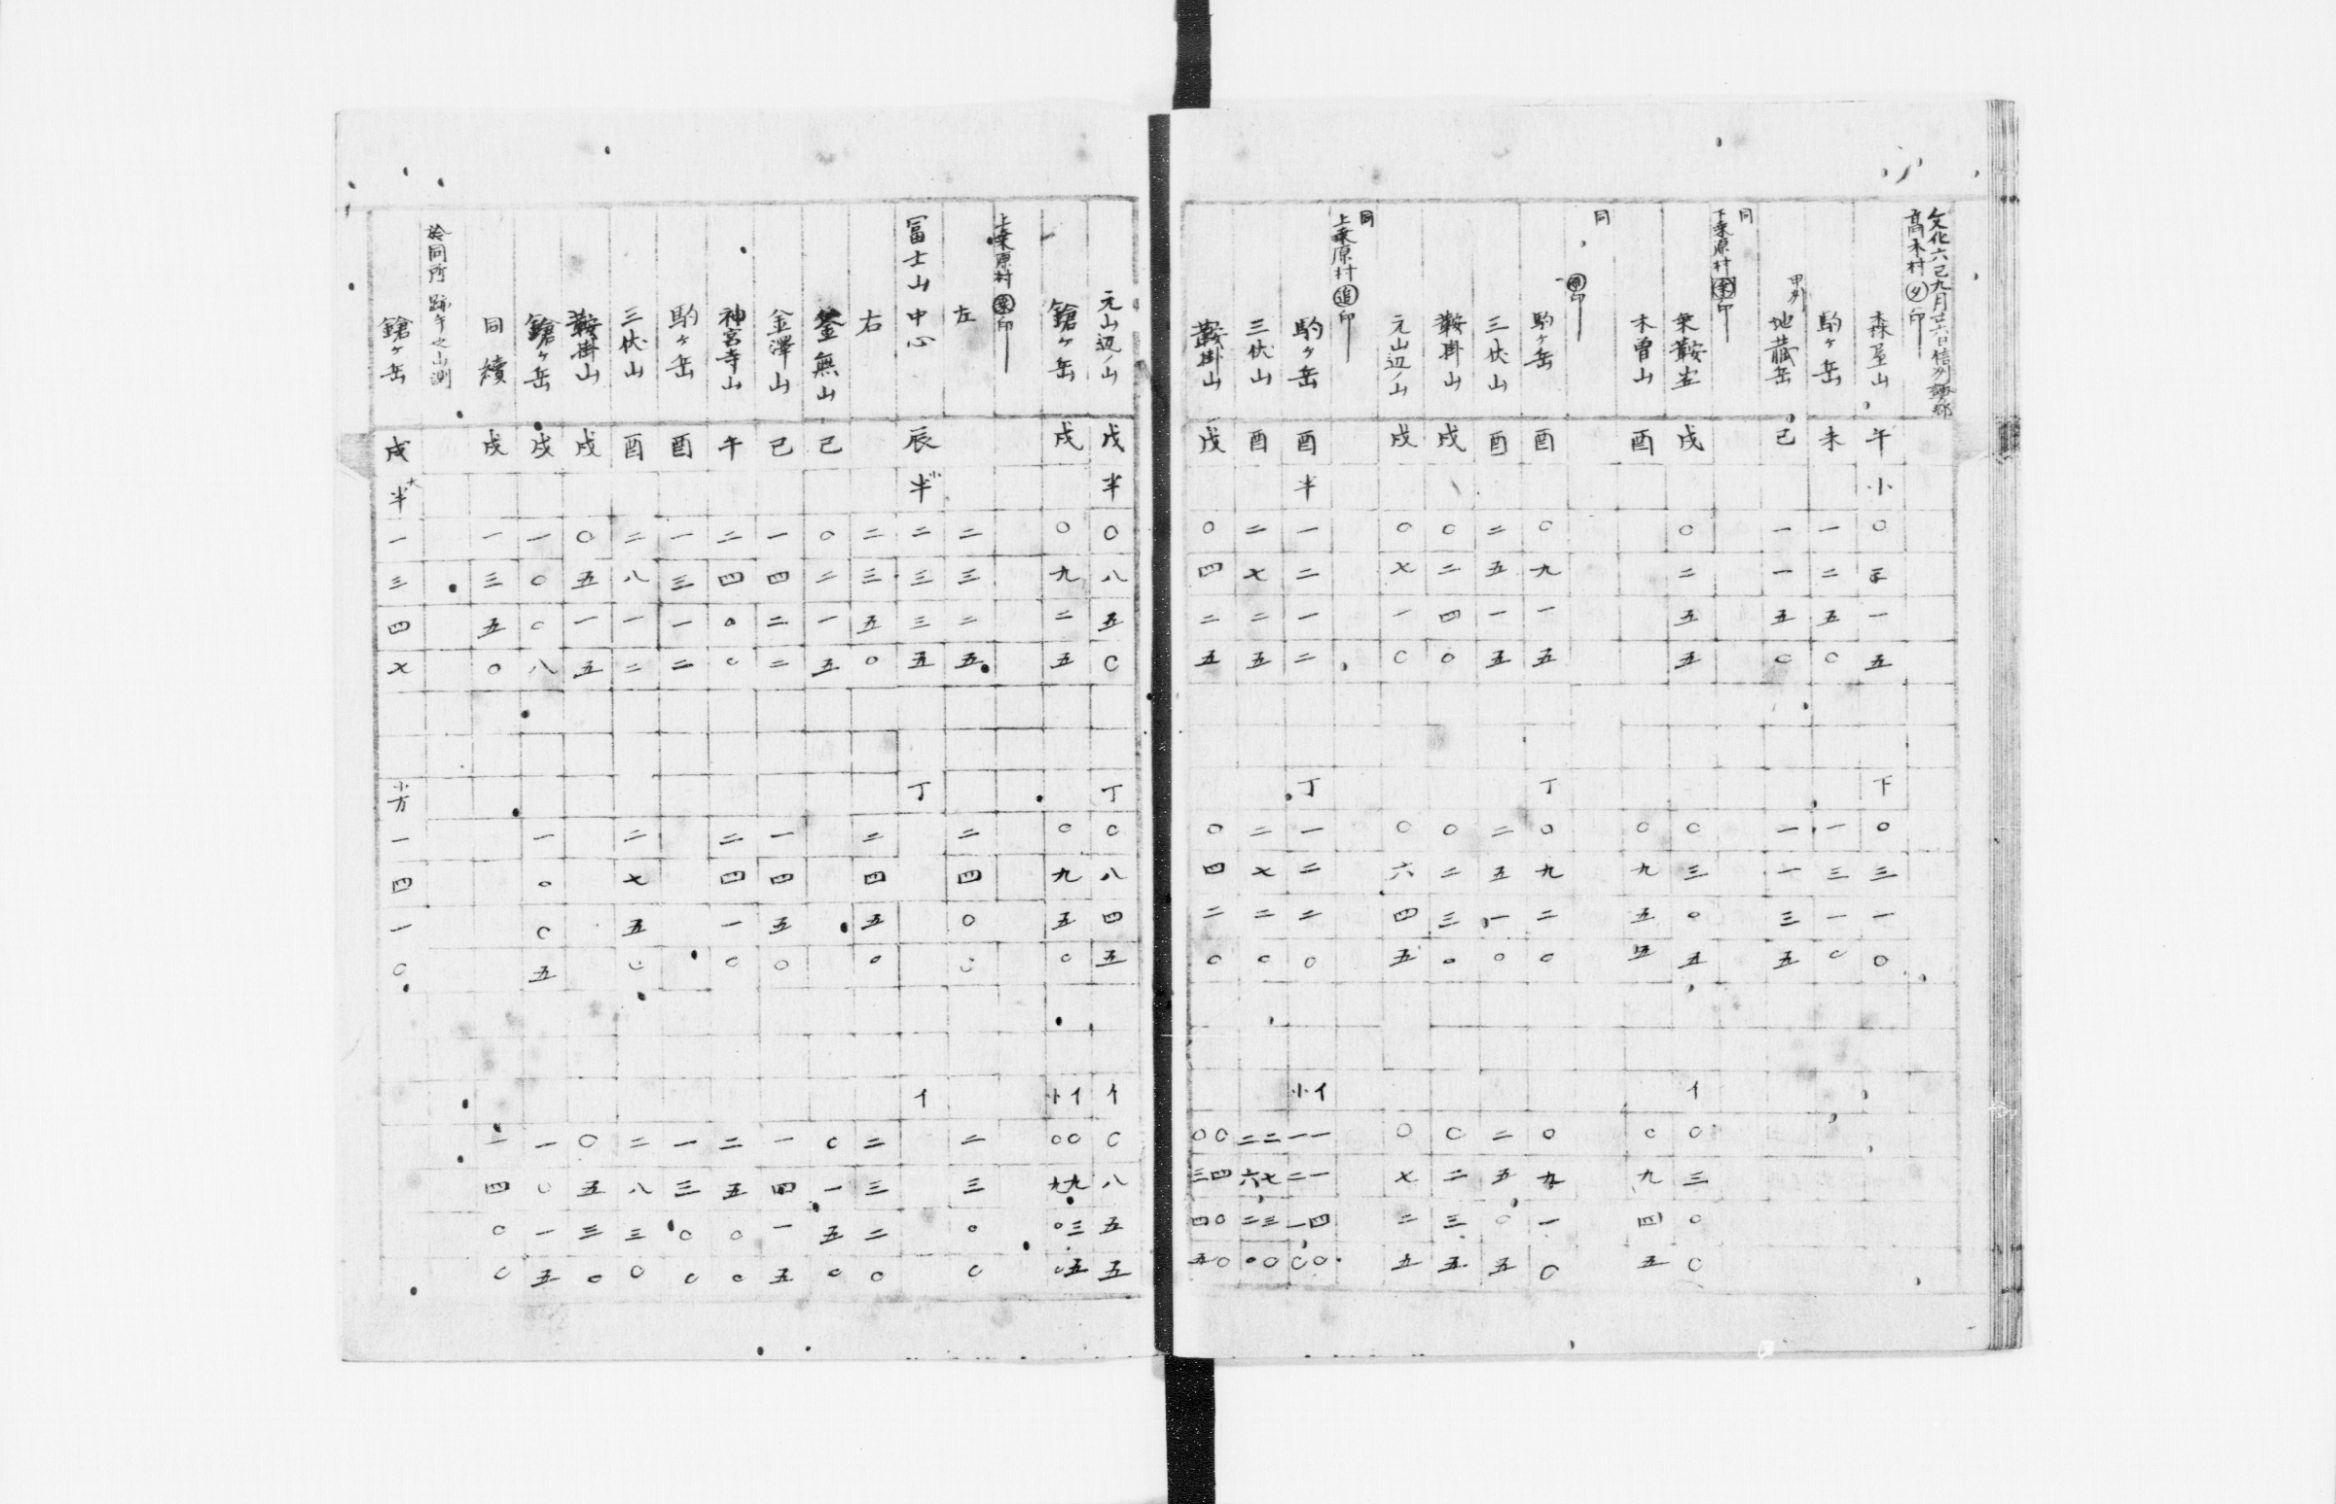 文化六己九月廿六日信州諏郡
高木村㋼印
森屋山 午 小 〇 三 一 五 下 〇 三 一 〇
駒ヶ岳 未 一 二 五 〇 一 三 一 〇
甲州
地蔵岳 己 一 一 五 〇 一 一 三 五
同
下桒原村 印
乗鞍岳 戌 〇 二 五 五 〇 三 〇 五 イ 〇 三 〇 〇
木曽山 酉 〇 九 五 五 〇 九 四 五
同
印
駒ヶ岳 酉 〇 九 一 五 丁 〇 九 二 〇 〇 九 一 〇
三伏山 酉 二 五 一 五 二 五 一 〇 二 五 〇 五
鞍掛山 戌 〇 二 四 〇 〇 二 三 〇 〇 二 三 五
元山辺ノ山 戌 〇 七 一 〇 〇 六 四 五 〇 七 二 五
同
上桒原村 追印
駒ヶ岳 酉 半 一 二 一 二 丁 一 二 二 〇 小イ 一一 二一 一四 〇〇
三伏山 酉 二 七 二 五 二 七 二 〇 二二 六七 二三 〇〇
鞍掛山 戌 〇 四 二 五 〇 四 二 〇 〇〇 三四 四〇 五〇
元山辺ノ山 戌 半 〇 八 五 〇 丁 〇 八 四 五 イ 〇 八 五 五
鎗ヶ岳 戌 〇 九 二 五 〇 九 五 〇 小イ 〇〇 九九 〇三 〇五
上桒原村 印
左 二 三 二 五 二 四 〇 〇 二 三 〇 〇
冨士山中心 辰 小半 二 三 三 五 丁 イ
右 二 三 五 〇 二 四 五 〇 二 三 二 〇
釜無山 己 〇 二 一 五 〇 一 五 〇
金澤山 己 一 四 二 二 一 四 五 〇 一 四 一 五
神宮寺山 午 二 四 〇 〇 二 四 一 〇 二 五 〇 〇
駒ヶ岳 酉 一 三 一 二 一 三 〇 〇
三伏山 酉 二 八 一 二 二 七 五 〇 二 八 三 〇
鞍掛山 戌 〇 五 一 五 〇 五 三 〇
鎗ヶ岳 戌 一 〇 〇 八 一 〇 〇 五 一 〇 一 五
同續 戌 一 三 五 〇 一 四 〇 〇
於同所 之山測
鎗ヶ岳 戌 大半 一 三 四 七 小方 一 四 一 〇